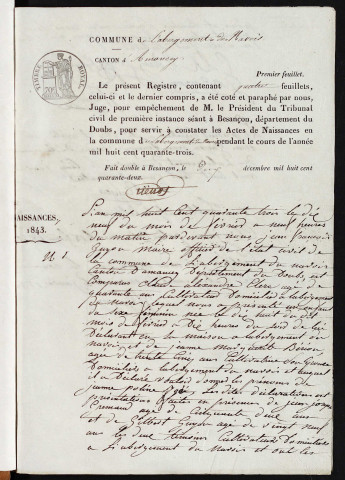 COMMUNE d
CANTON d'Amancey
Premier feuillet.
Le présent Registre, contenant quatre feuillets,
celui-ci et le dernier compris, a été coté et paraphé par nous,
Juge, pour empêchement de M. le Président du Tribunal
civil de première instance séant à Besançon, département du
Doubs, pour servir à constater les Actes de Naissances en
la commune d pendant le cours de l'année
mil huit cent quarante-trois.
Fait double à Besançon, le decembre mil huit cent
quarante-deux.
TIMBRE ROYAL
NAISSANCES,
1843.
N 1
L'an mil huit cent quarante trois le dix
neuf du mois de février a neuf heures
du matin pardevant nous jean françois
maire officier de l'état civil de
la commune de Labergement du navois
Canton D'amancey Département du Doubs est
Comparu Claude alexandre Clerc agé de
quarante ans Cultivateur Domicilié a labergement
du navois lequel nous a un enfant
du sexe féminin née le dix huit du
mois de février a dix heures du soir de lui
Déclarant en sa maison a labergement du
navois et de jeanne
agée de trente cinq ans
Domiciliée a labergement du navois et auquel
il a Déclaré vouloir donner les prénoms de
jeanne Les dites déclarations et
présentations faites en présence de jean joseph
agé de Cinquante deux ans
et de agé de vingt neuf
ans les deux témoins Cultivateurs Domiciliés
a Labergement du Navois et ont les